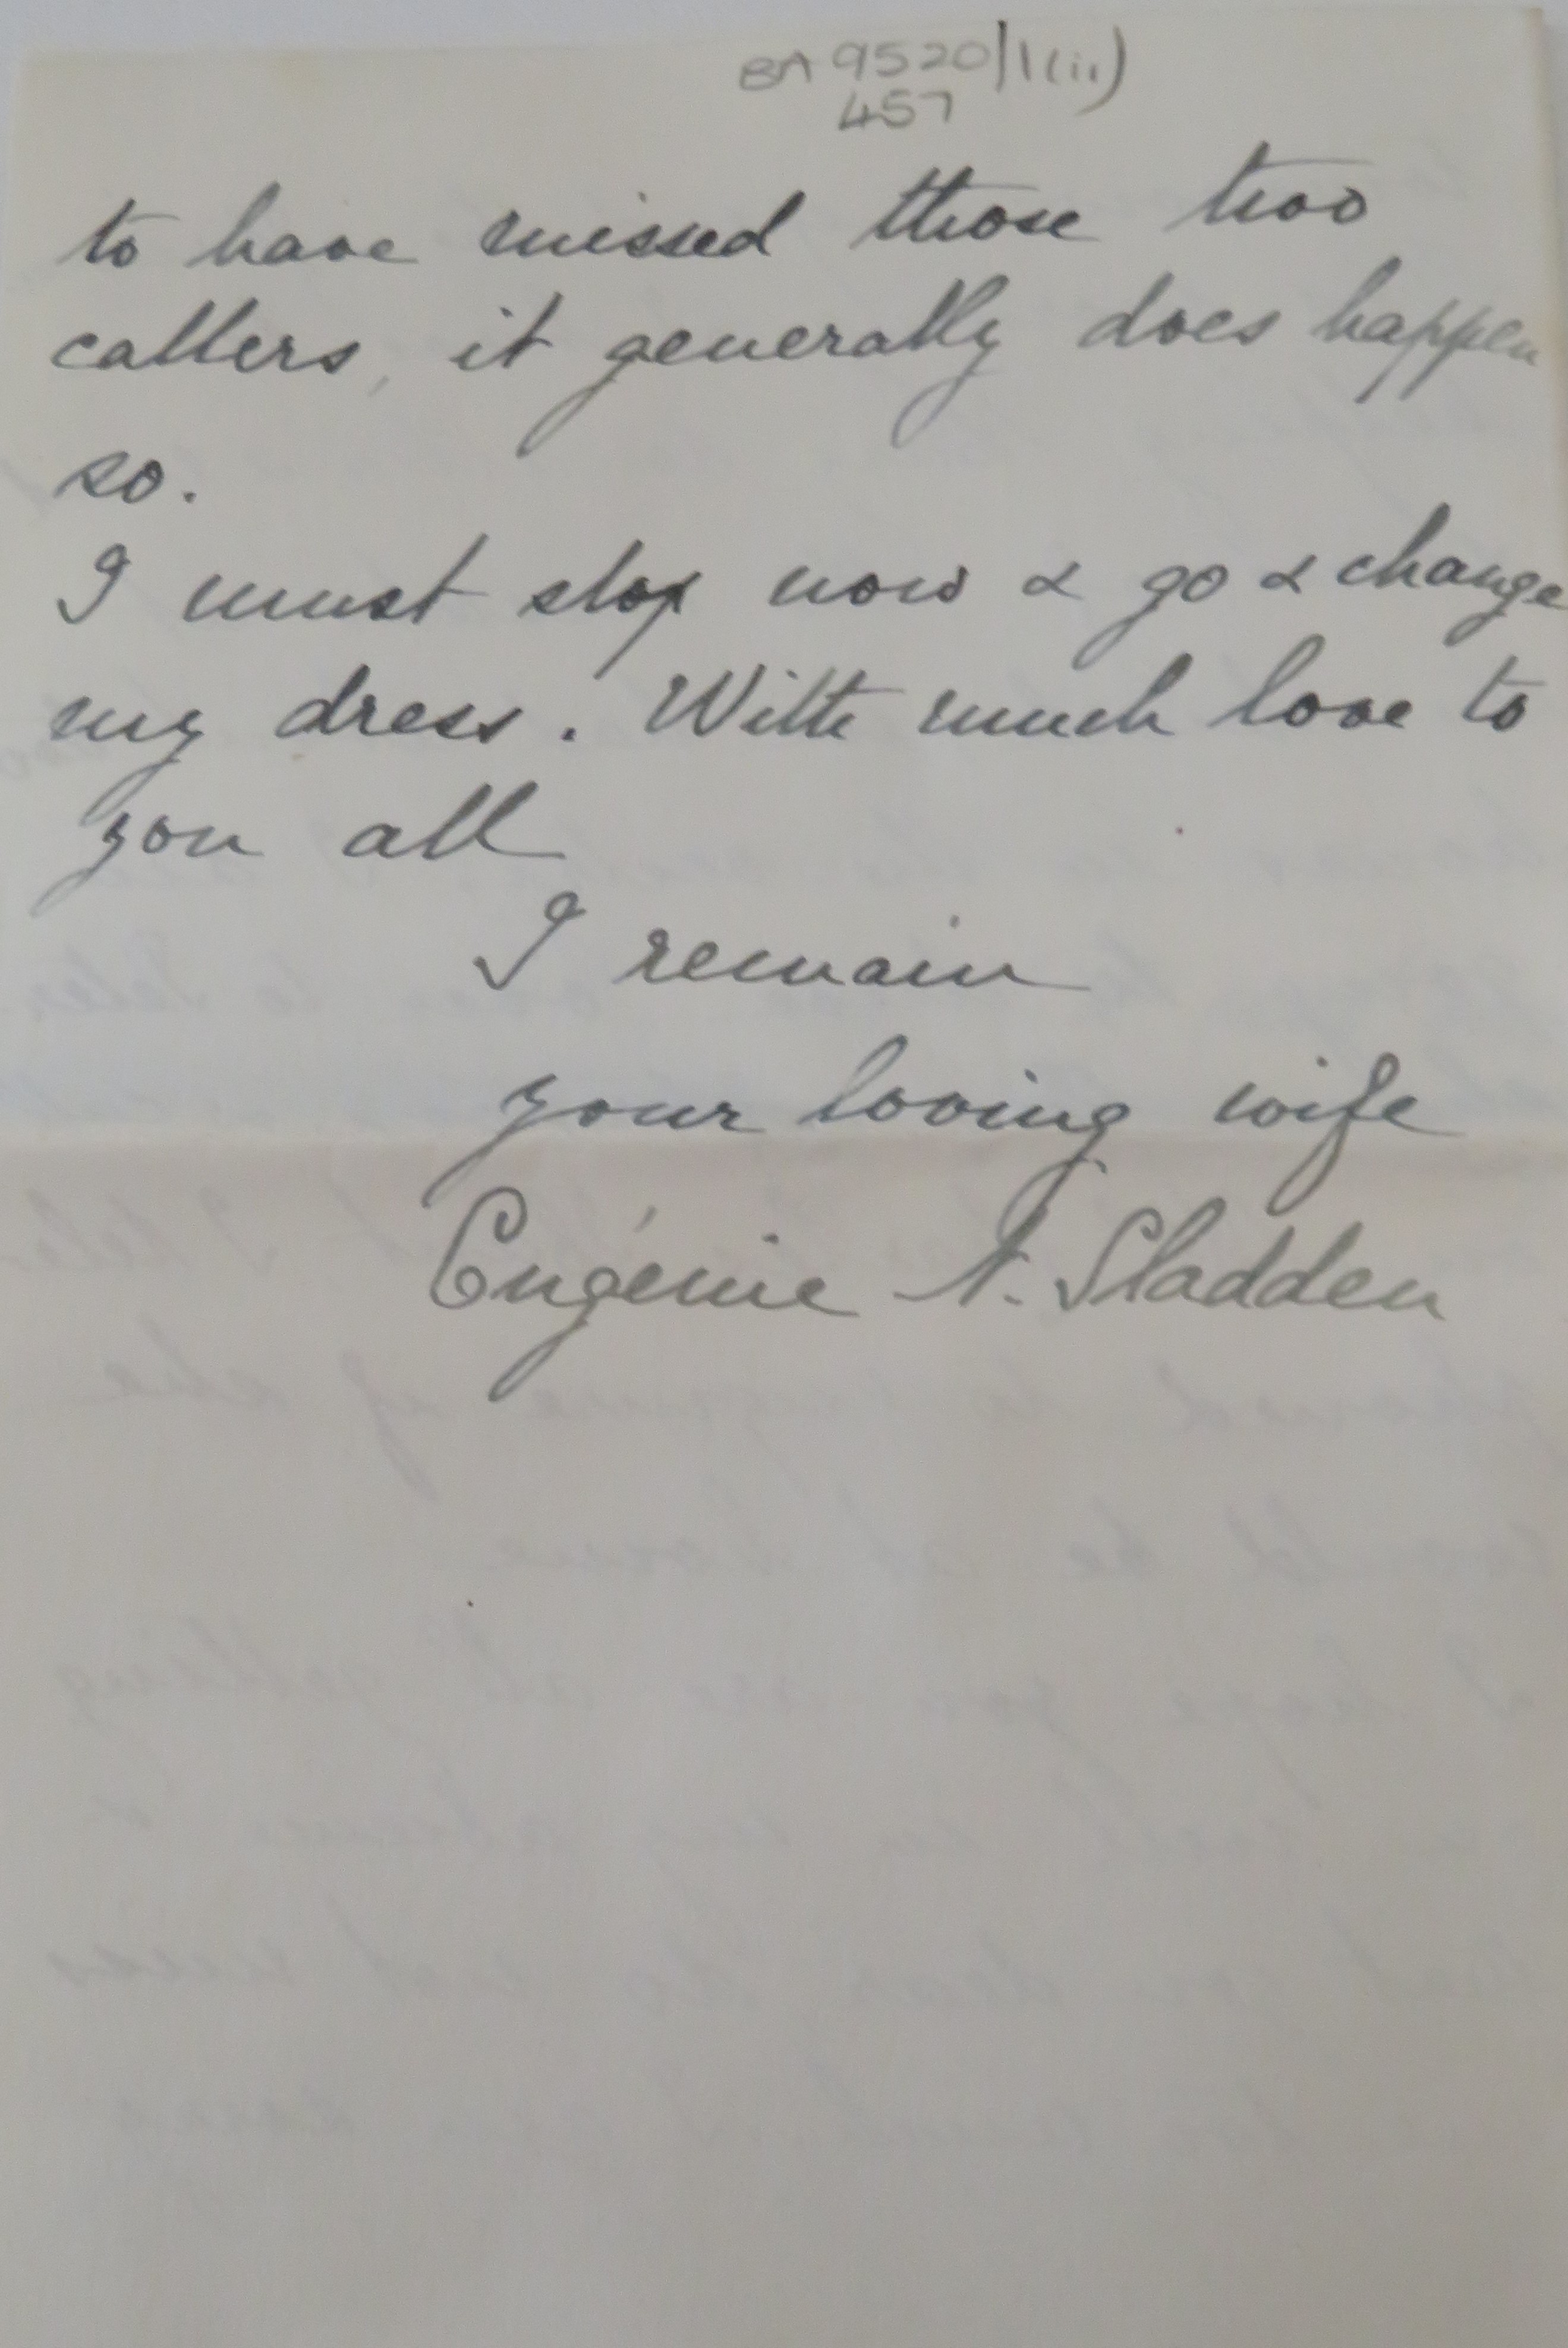 BA 9520/1(ii)
457
to have missed those two
callers, it generally does happen
so.
I must stop now & go & change
my dress. With much love to
you all
I remain
your loving wife
Eugénie N. Sladden